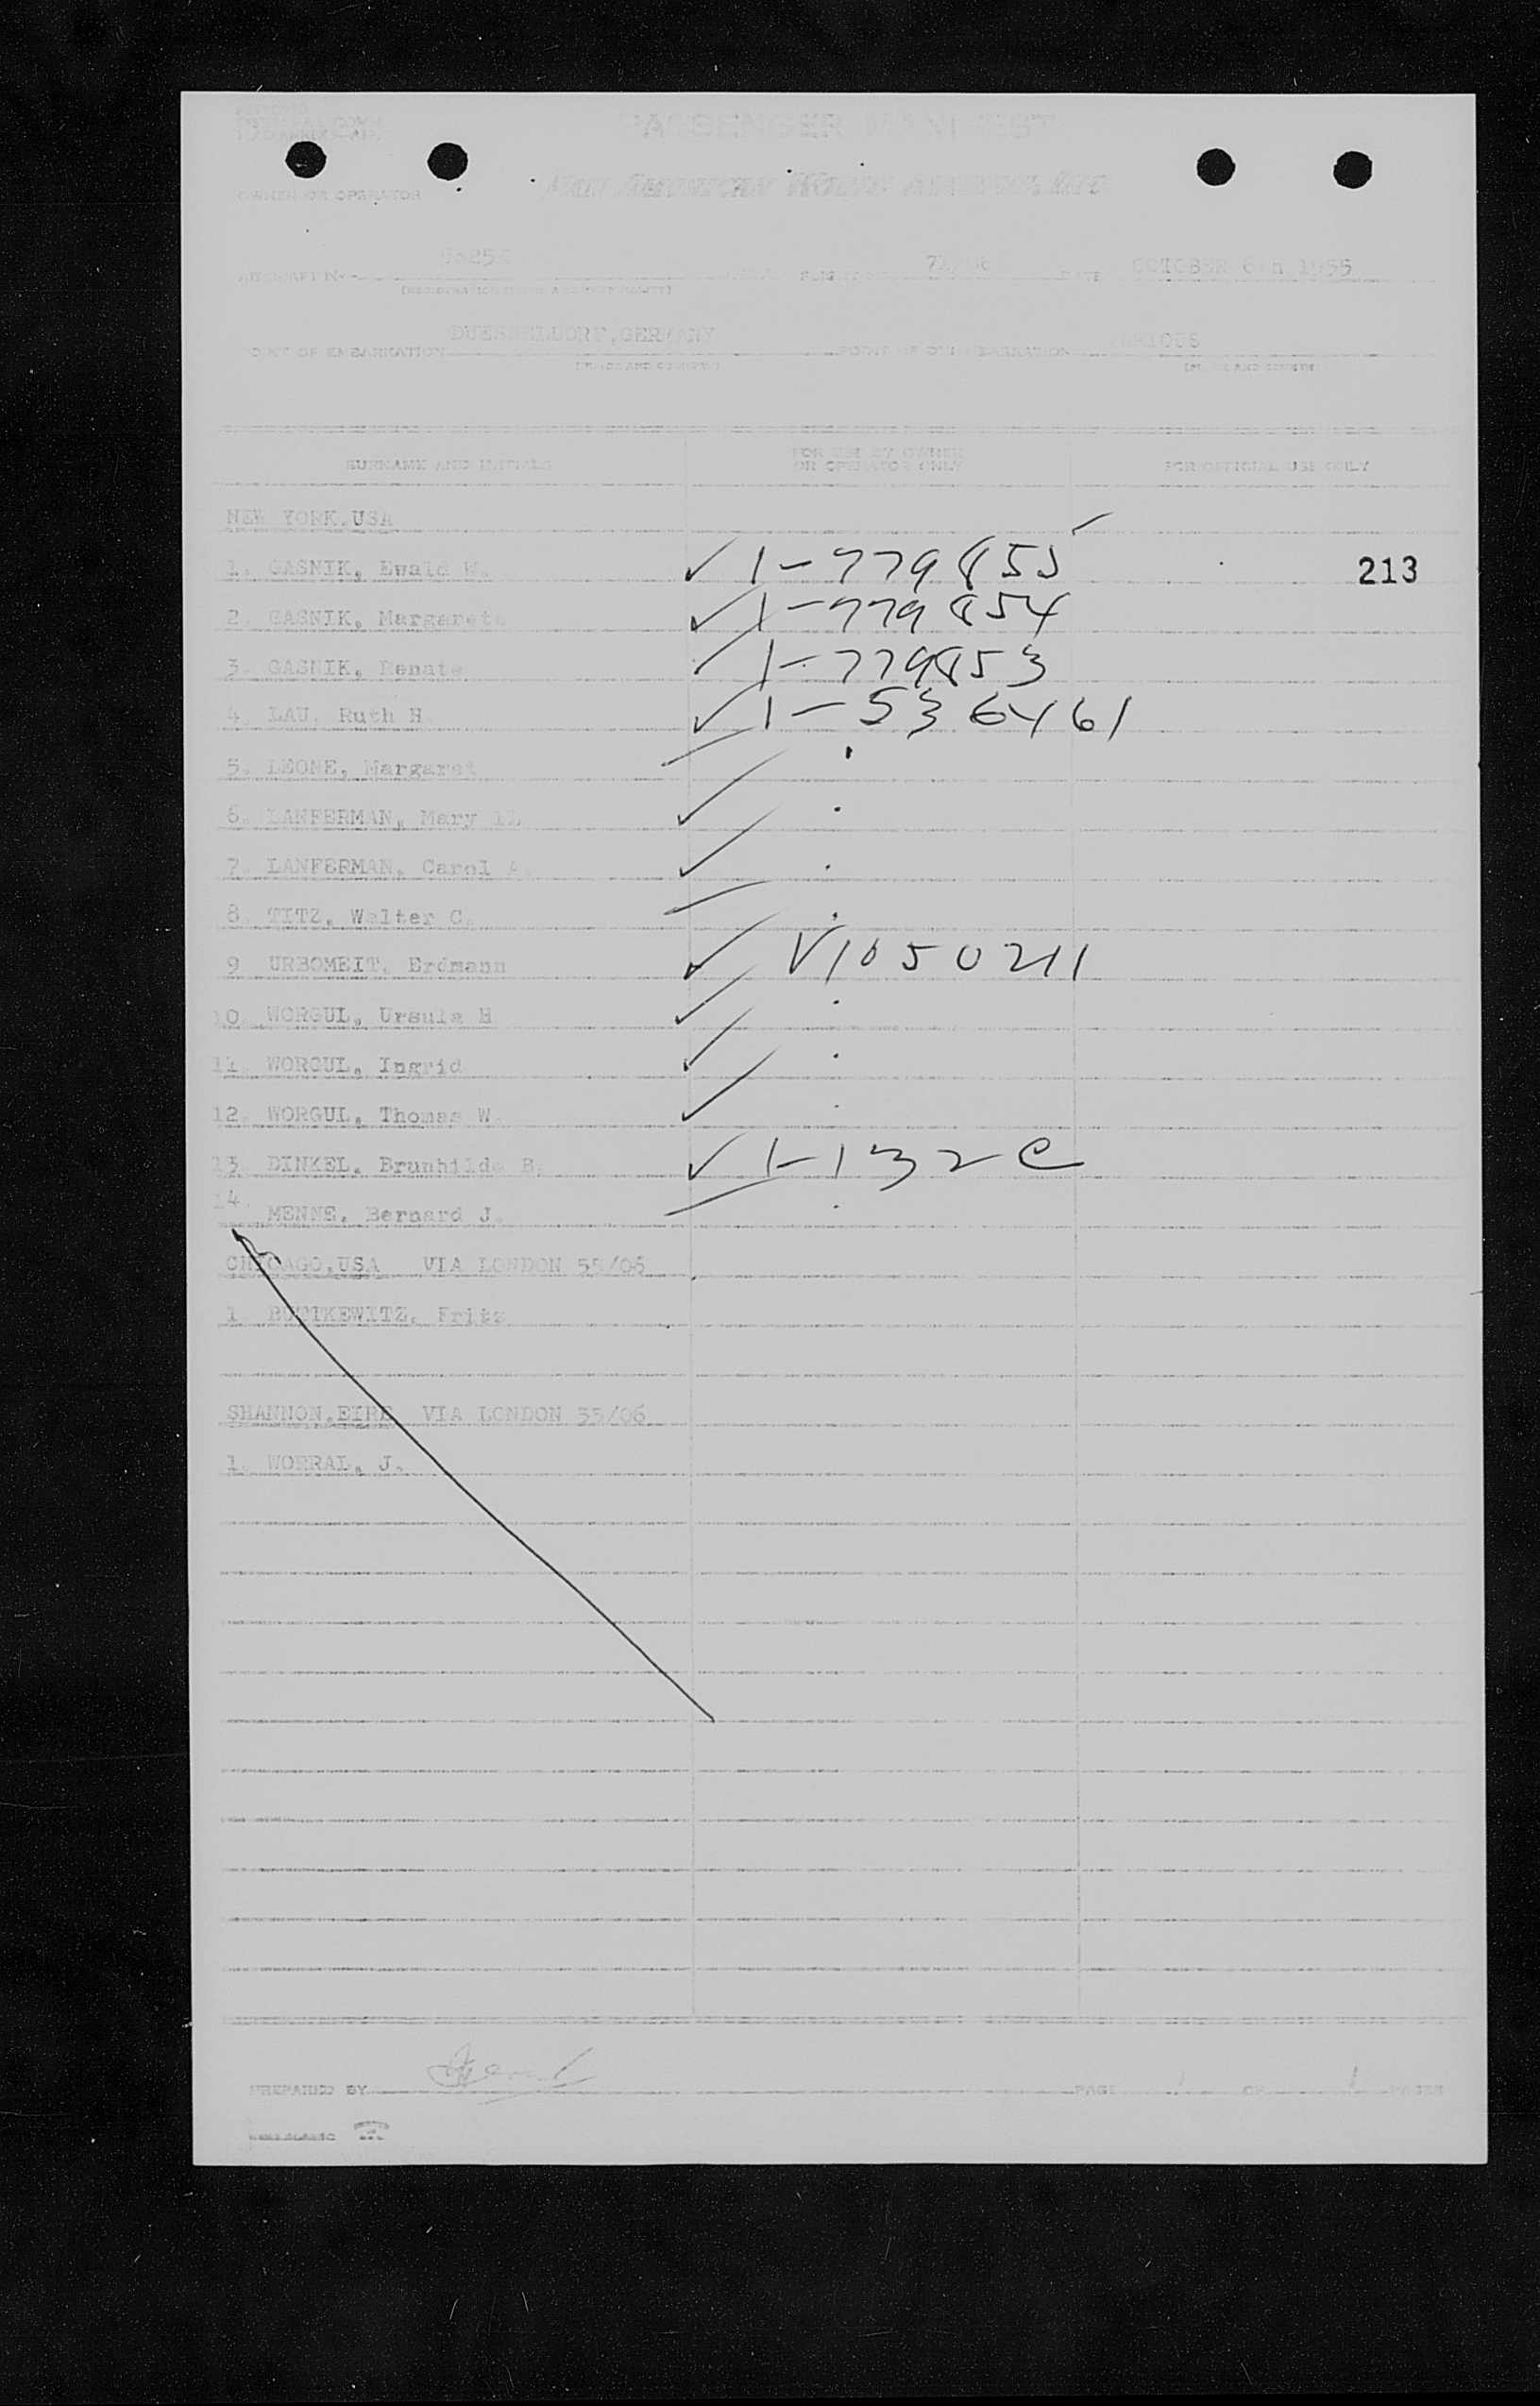 PASSENGER MANIFEST
OWNER OR OPERATOR Pan American World Airways, Inc
FLIGHT DATE OCTOBER 6th 1955
POINT OF EMBARKATION DUESSELDORF, GERMANY POINT OF DISEMBARKATION VARIOUS
(PLACE AND COUNTRY) (PLACE AND COUNTRY)
SURNAME AND INITIALS FOR USE BY OWNER OR OPERATOR ONLY FOR OFFICIAL USE ONLY
NEW YORK, USA
1. GASNIK, Ewald W. ✓ 1-779855 213
2. GASNIK, Margarete ✓ 1-779854
3. GASNIK, Renate ✓ 1-779853
4. LAU, Ruth H ✓ 1-5366461
5. LEONE, Margaret
6. LANFERMAN, Mary ✓
7. LANFERMAN, Carol A. ✓
8. TITZ, Walter C.
9 URBOMEIT, Erdmann ✓ V1050211
10. WORGUL, Ursula H ✓
11. WORGUL, Ingrid ✓
12. WORGUL, Thomas W. ✓
13. DINKEL, Brunhilde B. ✓ 1-132 C
14. MENNE, Bernard J.
CHICAGO, USA VIA LONDON 55/06
1 BUTTKEWITZ, Fritz
SHANNON, EIRE VIA LONDON 55/06
1. WORRAL, J.
PREPARED BY PAGE 1 OF 1 PAGES